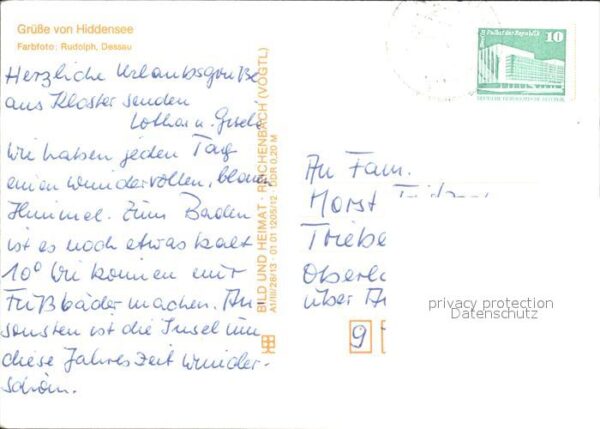 Grüße von Hiddensee
Farbfoto: Rudolph, Dessau
Herzliche Urlaubsgrüße
aus Kloster senden
Lothar u. Gisela
Wir haben jeden Tag
einen wundervollen, blauen
Himmel. Zum Baden
ist es noch etwas kalt
10° Wir können nur
Fußbäder machen. An
sonsten ist die Insel um
diese Jahreszeit wunder-
schön.
BILD UND HEIMAT · REICHENBACH (VOGTL)
A1/III/26/13 · 01 01 1205/12 · DDR 0,20 M
Berlin Palast der Republik
10
DEUTSCHE DEMOKRATISCHE REPUBLIK
An Fam.
Horst
Triebe
Oberl
über
9
privacy protection
Datenschutz